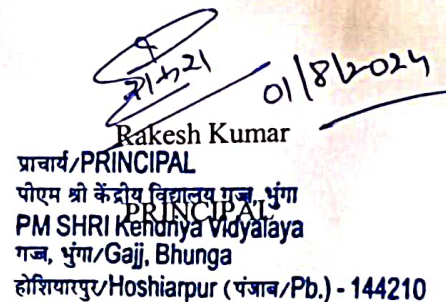 राकेश
01/8/2024
Rakesh Kumar
प्राचार्य/PRINCIPAL
पीएम श्री केंद्रीय विद्यालय गज्ज, भुंगा
PRINCIPAL
PM SHRI Kendriya Vidyalaya
गज्ज, भुंगा/Gajj, Bhunga
होशियारपुर/Hoshiarpur (पंजाब/Pb.) - 144210